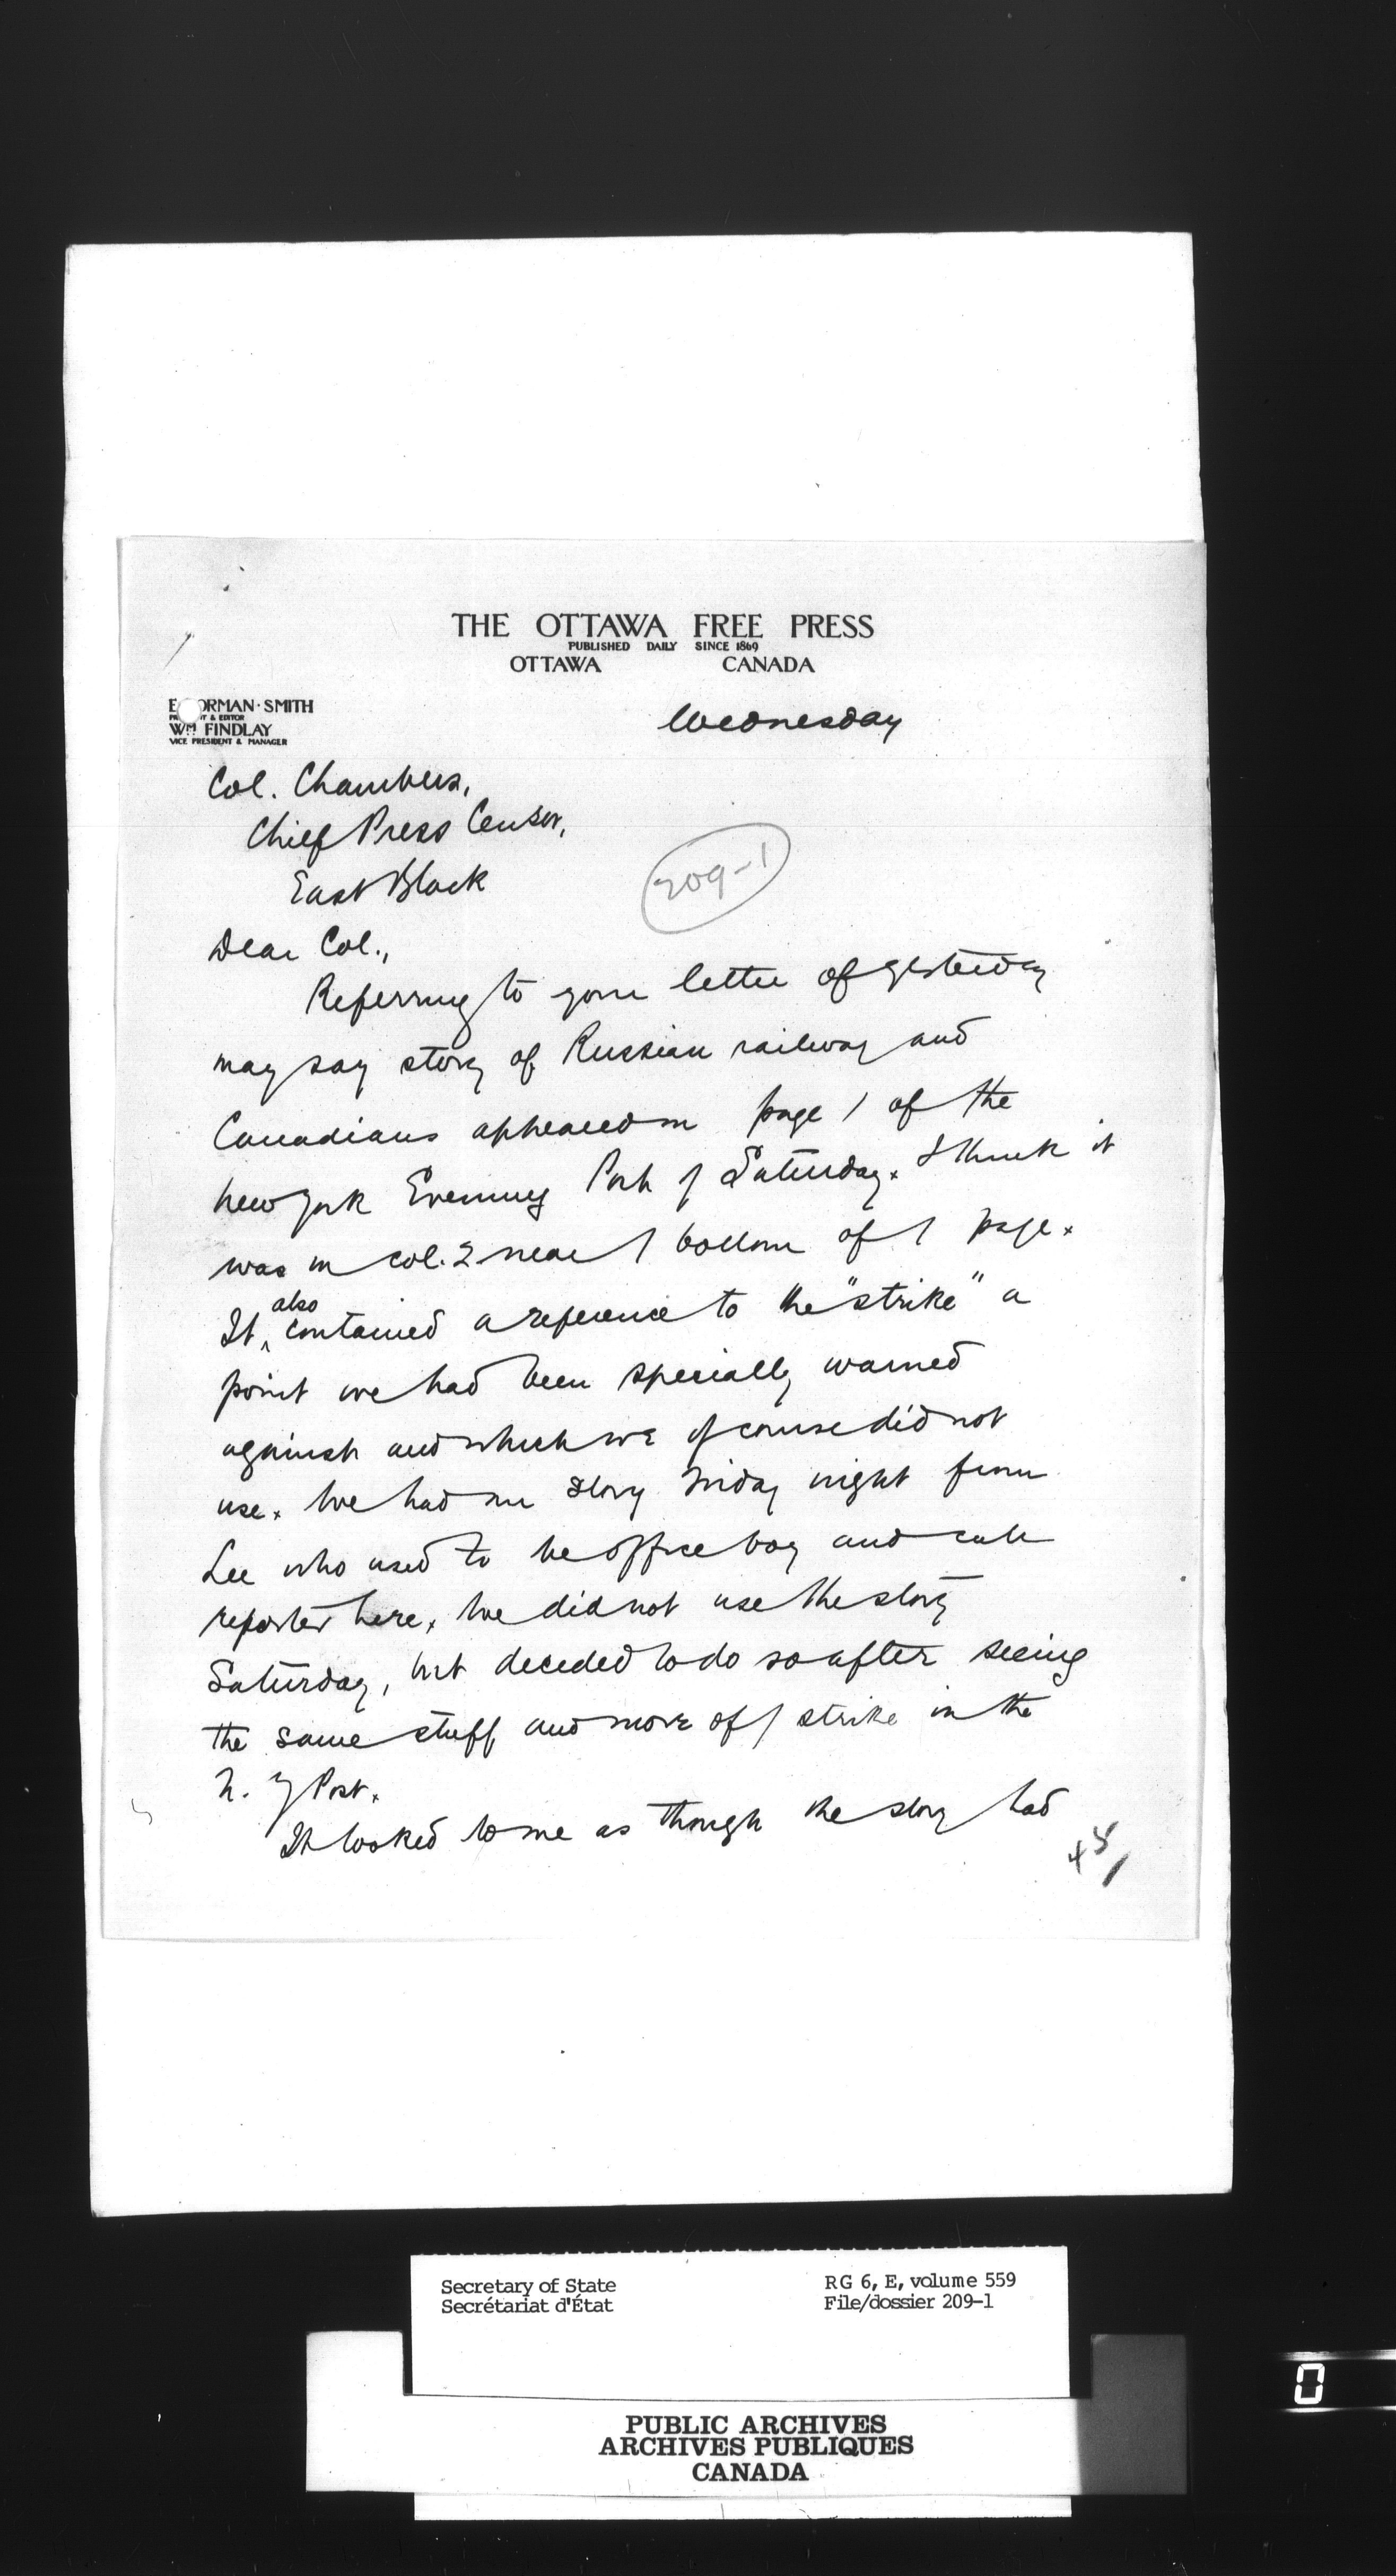 THE OTTAWA FREE PRESS
PUBLISHED DAILY SINCE 1869
OTTAWA CANADA
E ORMAN · SMITH
T & EDITOR
WM FINDLAY
VICE PRESIDENT & MANAGER
Wednesday
Col. Chambers,
Chief Press Censor,
East Block
209-1
Dear Col.,
Referring to your letter of yesterday
may say story of Russian railway and
Canadians appeared on page 1 of the
New York Evening Post / Saturday. I think it
was in col. 2 near / bottom of / page.
It also contained a reference to the "strike" a
point we had been specially warned
against and which we of course did not
use. We had our story Friday night from
Lee who used to be office boy and cub
reporter here. We did not use the story
Saturday, but decided to do so after seeing
the same stuff and more of / strike in the
N. Y Post.
It looked to me as though the story had
Secretary of State
Secrétariat d'État
RG 6, E, volume 559
File/dossier 209-1
PUBLIC ARCHIVES
ARCHIVES PUBLIQUES
CANADA
0